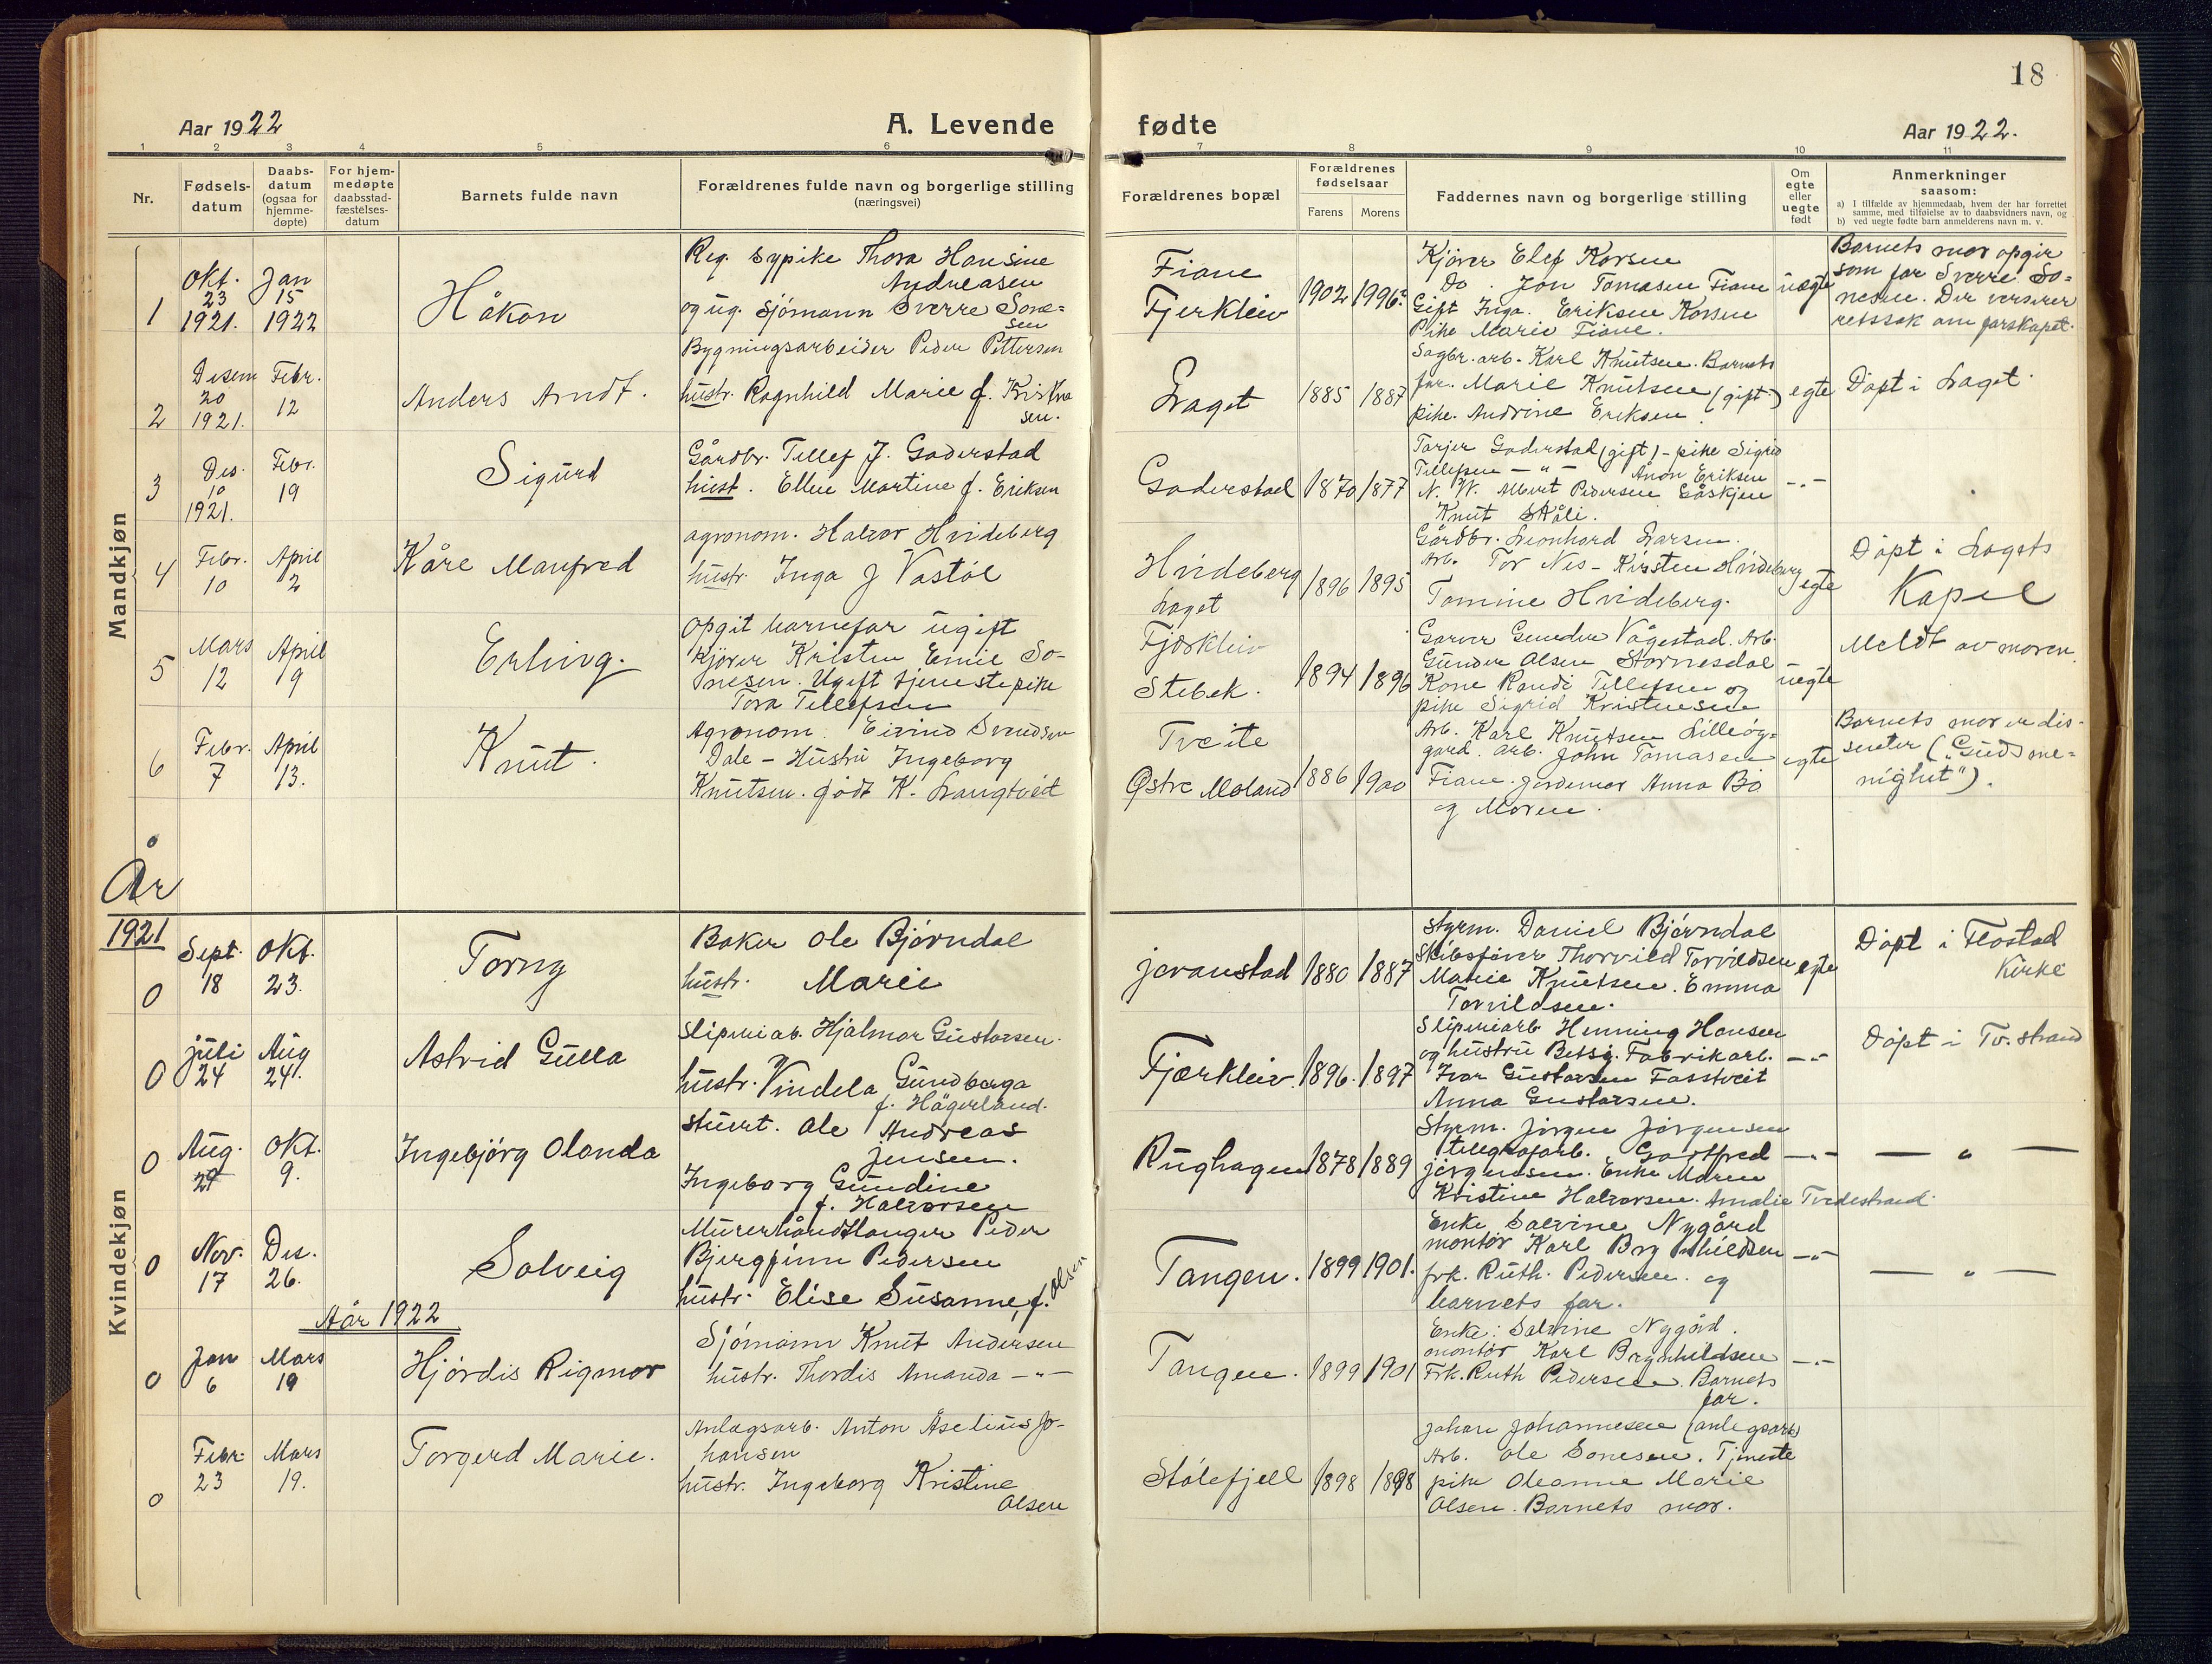 18
Aar 1922
A. Levende
fødte
Aar 1922.
1
2
3
4
5
6
7
8
9
10
11
Nr.
Fødsels-
datum
Daabs-
datum
(ogsaa for
hjemme-
døpte)
For hjem-
medøpte
daabsstad-
fæstelses-
datum
Barnets fulde navn
Forældrenes fulde navn og borgerlige stilling
(næringsvei)
Forældrenes bopæl
Forældrenes
fødselsaar
Farens
Morens
Faddernes navn og borgerlige stilling
Om
egte
eller
uegte
født
Anmerkninger
saasom:
a) I tilfælde av hjemmedaab, hvem der har forrettet
samme, med tilføielse av to daabsvidners navn, og
b) ved uegte fødte barn anmelderens navn m. v.
Mandkjøn
1
Okt.
23
1921.
Jan
15
1922
Håkon
Reg. Sypike Thora Hansine
Andreasen
og ug. Sjömann Sverre Sone-
sen
Fiane
Fjerkleiv
1902
1996?
Kjörer Elef Korsen
Do. Jon Tomasen Fiane
Gift Inga Eriksen Korsen
Pike Marie Fiane.
uegte
Barnets mor opgir
som far Sverre So-
nesen. Der verserer
retssak om farskapet.
2
Desem
20
1921.
Febr.
12
Anders Arndt.
Bygningsarbeider Peder Pettersen
hustr. Ragnhild Marie f. Kristian
sen.
Laget
1885
1887
Sagbr. arb. Karl Knutsen. Barnets
far. Marie Knutsen (gift)
pike. Andrine Eriksen.
egte
Döpt i Laget.
3
Des.
10
1921.
Febr.
19
Sigurd
Gårdbr. Tellef J. Goderstad
hust. Ellen Martine f. Eriksen
Goderstad
1870
1877
Tarjer Goderstad (gift) - pike Sigrid
Tellefsen - " - Anon Eriksen
N. W. Albert Pedersen Gåskjen
Knut Skåli.
- " -
4
Febr.
10
April
2
Kåre Manfred
agronom. Halvor Hvideberg
hustr. Inga f Vastöl
Hvideberg
Laget
1896
1895
Gårdbr. Leonhard Larsen.
Arb. Tor Nes - Kirsten Hvideberg
Tomine Hvideberg.
egte
Döpt i Lagets
Kapel
5
Mars
12
April
19
Erling.
Opgit barnefar ugift
kjörer Kristen Emil So-
nesen. Ugift tjenestepike
Tora Tellefsen
Fjærkleiv
Stebek.
1894
1896
Garver Gunder Vågestad. Arb.
Gunder Olsen Stornesdal
Kone Randi Tellefsen og
pike Sigrid Kristensen
uegte
Meldt av moren.
6
Febr.
7
April
13.
Knut.
Agronom. Eivind Svendsen
Dale - Hustru Ingeborg
Knutsen. född K. Langtveit
Tveite
Østre Moland
1886
1900
Arb. Karl Knutsen Lilleög-
gard. arb. John Tomasen
Fiane. Jordemor Anna Bö
og Moren.
egte
Barnets mor er dis-
senter ("Guds me-
nighet").
Kvindekjøn
År
1921
0
Sept.
18
Okt.
23.
Torny
Baker Ole Björndal
hustr. Marie
Jovanstad
1880
1887
Styrm. Daniel Björndal
Skibsförer Thorvild Torvildsen
Marie Knutsen. Emma
Torvildsen.
egte
Döpt i Flostad
Kirke
0
juli
24
Aug
24.
Astrid Gulla
Sliperiab. Hjalmar Gustavsen.
hustr. Vindela Gundborga
f. Hägerland.
Fjærkleiv.
1896.
1897
Sliperiarb Henning Hansen
og hustru Betsy. Fabrikarb.
Ivar Gustavsen Fasstveit
Anna Gustavsen.
- " -
Döpt i Tv. strand
0
Aug.
29
Okt.
9.
Ingebjörg Olanda
Stuert. Ole Andreas
Jensen.
Ingeborg Gundine
f. Halvorsen
Rughagen
1878
1889
Styrm. Jörgen Jörgensen
telegrafarb. Godtfred
Jörgensen. Enke Maren
Kristine Halvorsen. Amalie Tvedestrand.
- " -
- " -
0
Nov.
17
Des.
26.
Solveig
Murerhåndtlanger Peder
Bjergfinn Pedersen
hustr. Elise Susanne, f. Olsen
Tangen.
1899
1901.
Enke Salvine Nygård
montör Karl Brynhildsen
frk. Ruth. Pedersen. og
barnets far.
- " -
- " -
Aår 1922
0
Jan
6
Mars
19
Hjördis Rigmor
Sjömann Knut Andersen
hustr. Thordis Amanda - " -
Tangen.
1899
1901
Enke: Salvine Nygård.
montör Karl Brynhildsen
Frk. Ruth Pedersen. Barnets
far.
- " -
0
Febr.
23
Mars
19.
Torgerd Marie.
Anlægsarb. Anton Åselius Jo-
hansen
hustr. Ingeborg Kristine
Olsen
Stölefjell
1898
1898
Johan Johannesen (anlegsarb)
Arb. Ole Sonesen. Tjeneste
pike Oleanne Marie
Olsen. Barnets mor.